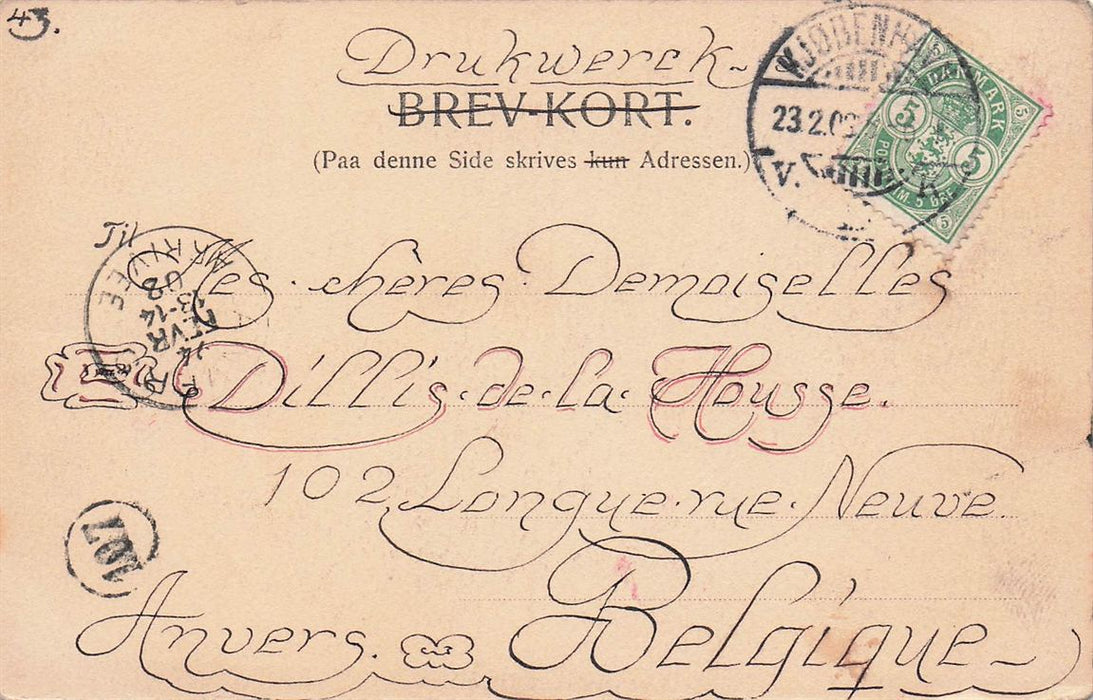 43.
Drukwerck
BREV-KORT.
(Paa denne Side skrives kun Adressen.)
KJØBENHAVN
23.2.02
V. K
DANMARK
5 5
5 5
POSTFRIM. 5 ØRE
Til
Les chères Demoiselles
Dillis-de-la-Housse.
102 Longue-rue-Neuve.
Anvers. Belgique
ARRIVÉE
02
13-14
FEVR
107